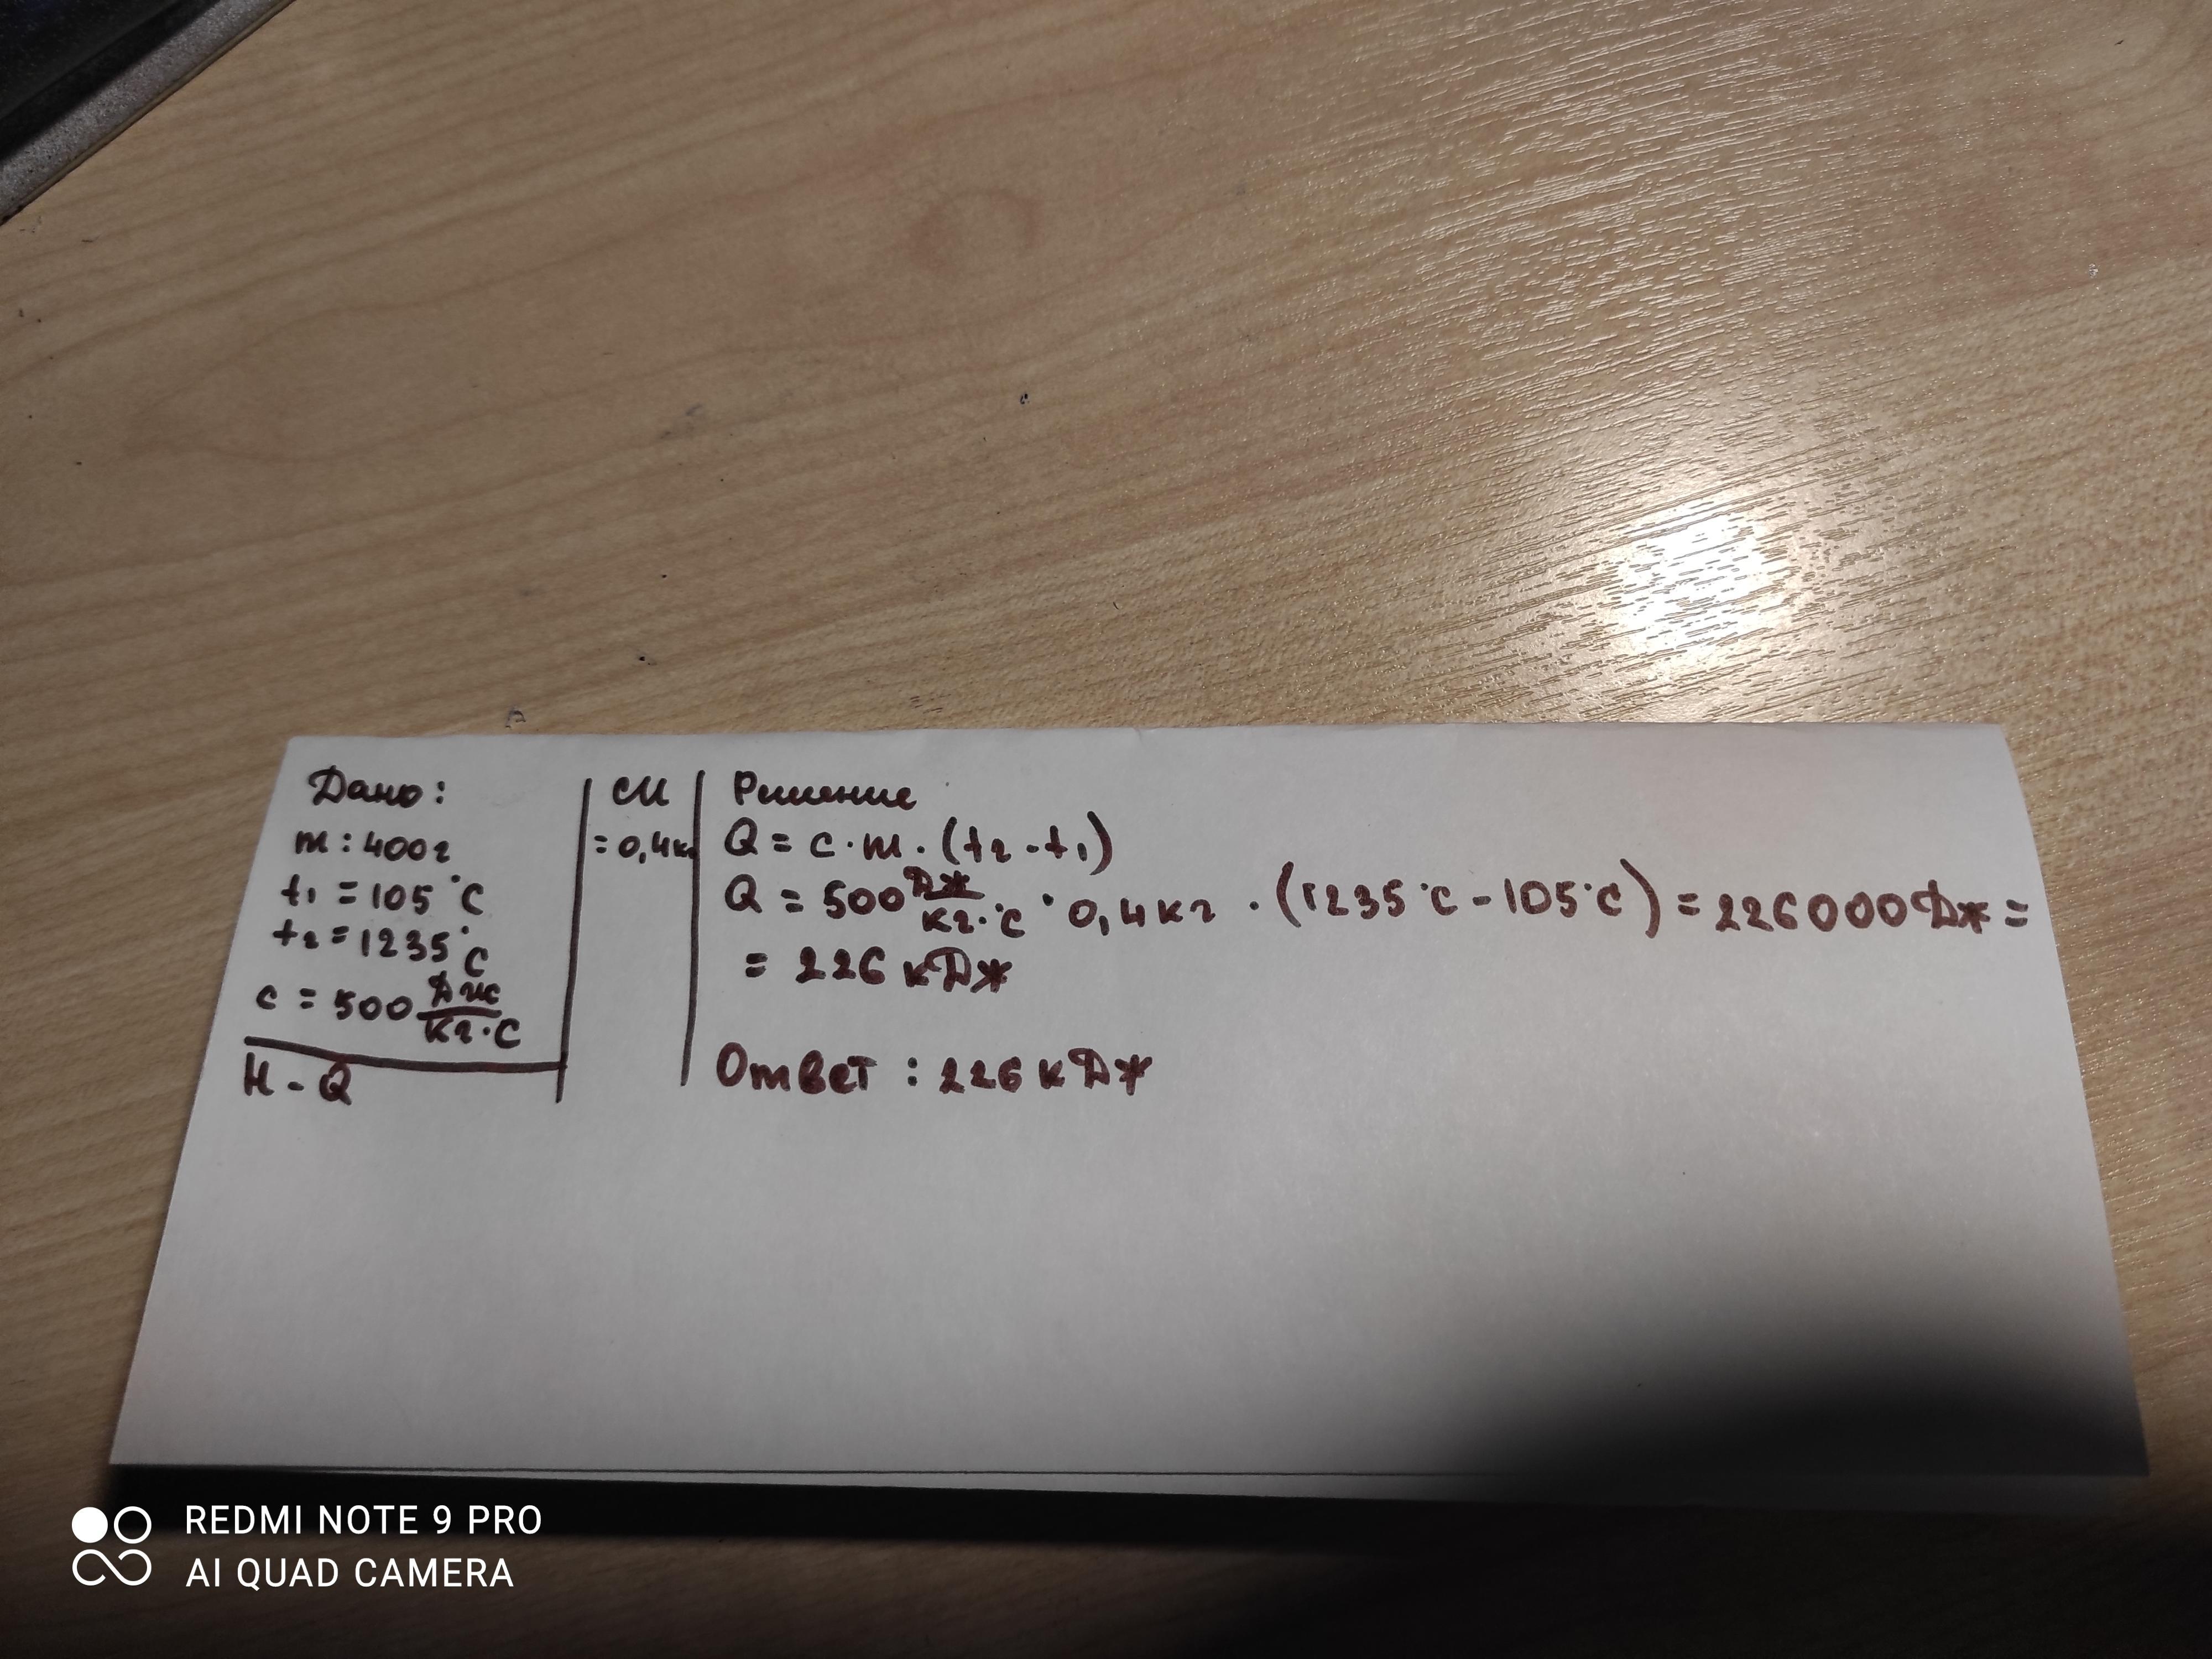 Дано:
m : 400г
t₁ = 105 °C
t₂ = 1235 °C
c = 500 Дж/кг·C
Н - Q
СИ
= 0,4 кг
Ришение
Q = c · m · (t₂ - t₁)
Q = 500 Дж/кг·°C · 0,4 кг · (1235°C - 105°C) = 226000 Дж =
= 226 кДж
Ответ : 226 кДж
REDMI NOTE 9 PRO
AI QUAD CAMERA